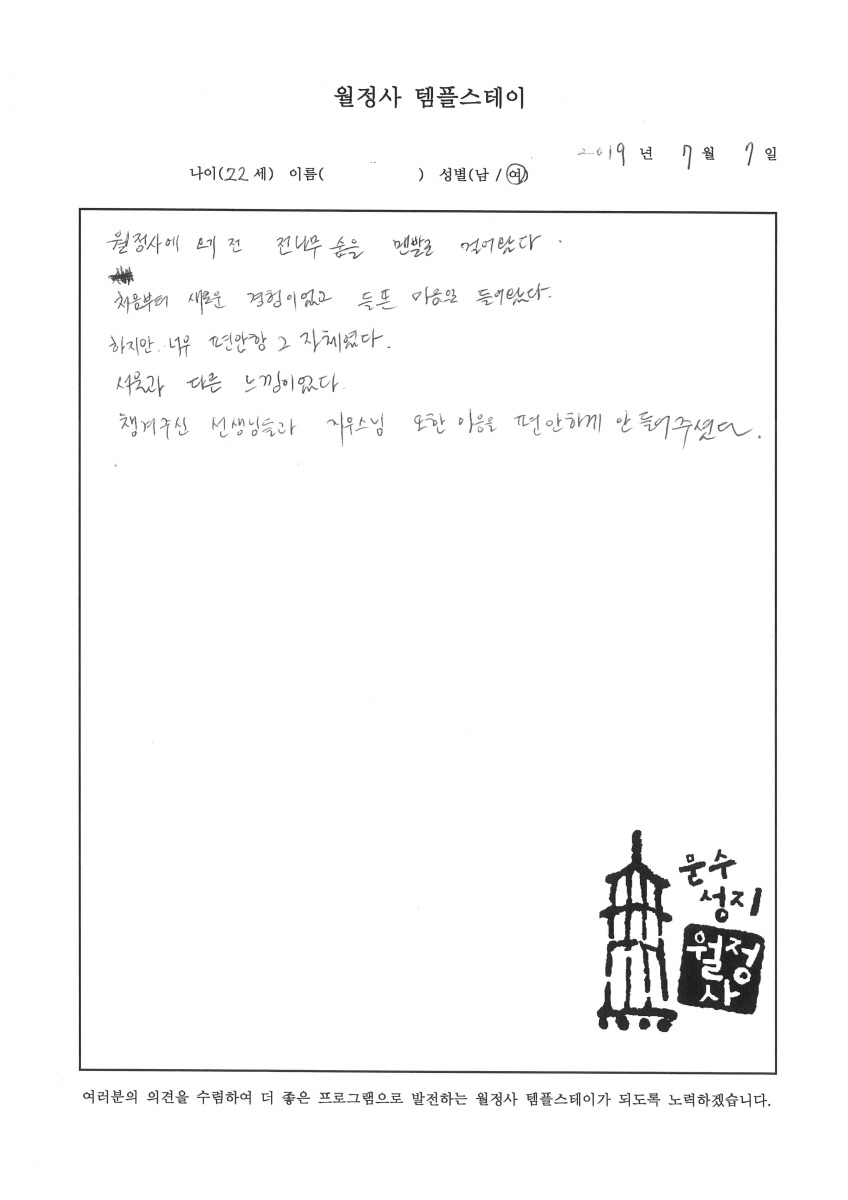 월정사 템플스테이
2019 년 7 월 7 일
나이(22 세) 이름( ) 성별(남 / 여)
월정사에 오기 전 전나무 숲을 맨발로 걸어왔다.
처음부터 새로운 경험이었고 들뜬 마음으로 들어왔다.
하지만 너무 편안함 그 자체였다.
서울과 다른 느낌이었다.
챙겨주신 선생님들과 지우스님 또한 마음을 편안하게 만들어주셨다.
문수
성지
월정
사
여러분의 의견을 수렴하여 더 좋은 프로그램으로 발전하는 월정사 템플스테이가 되도록 노력하겠습니다.